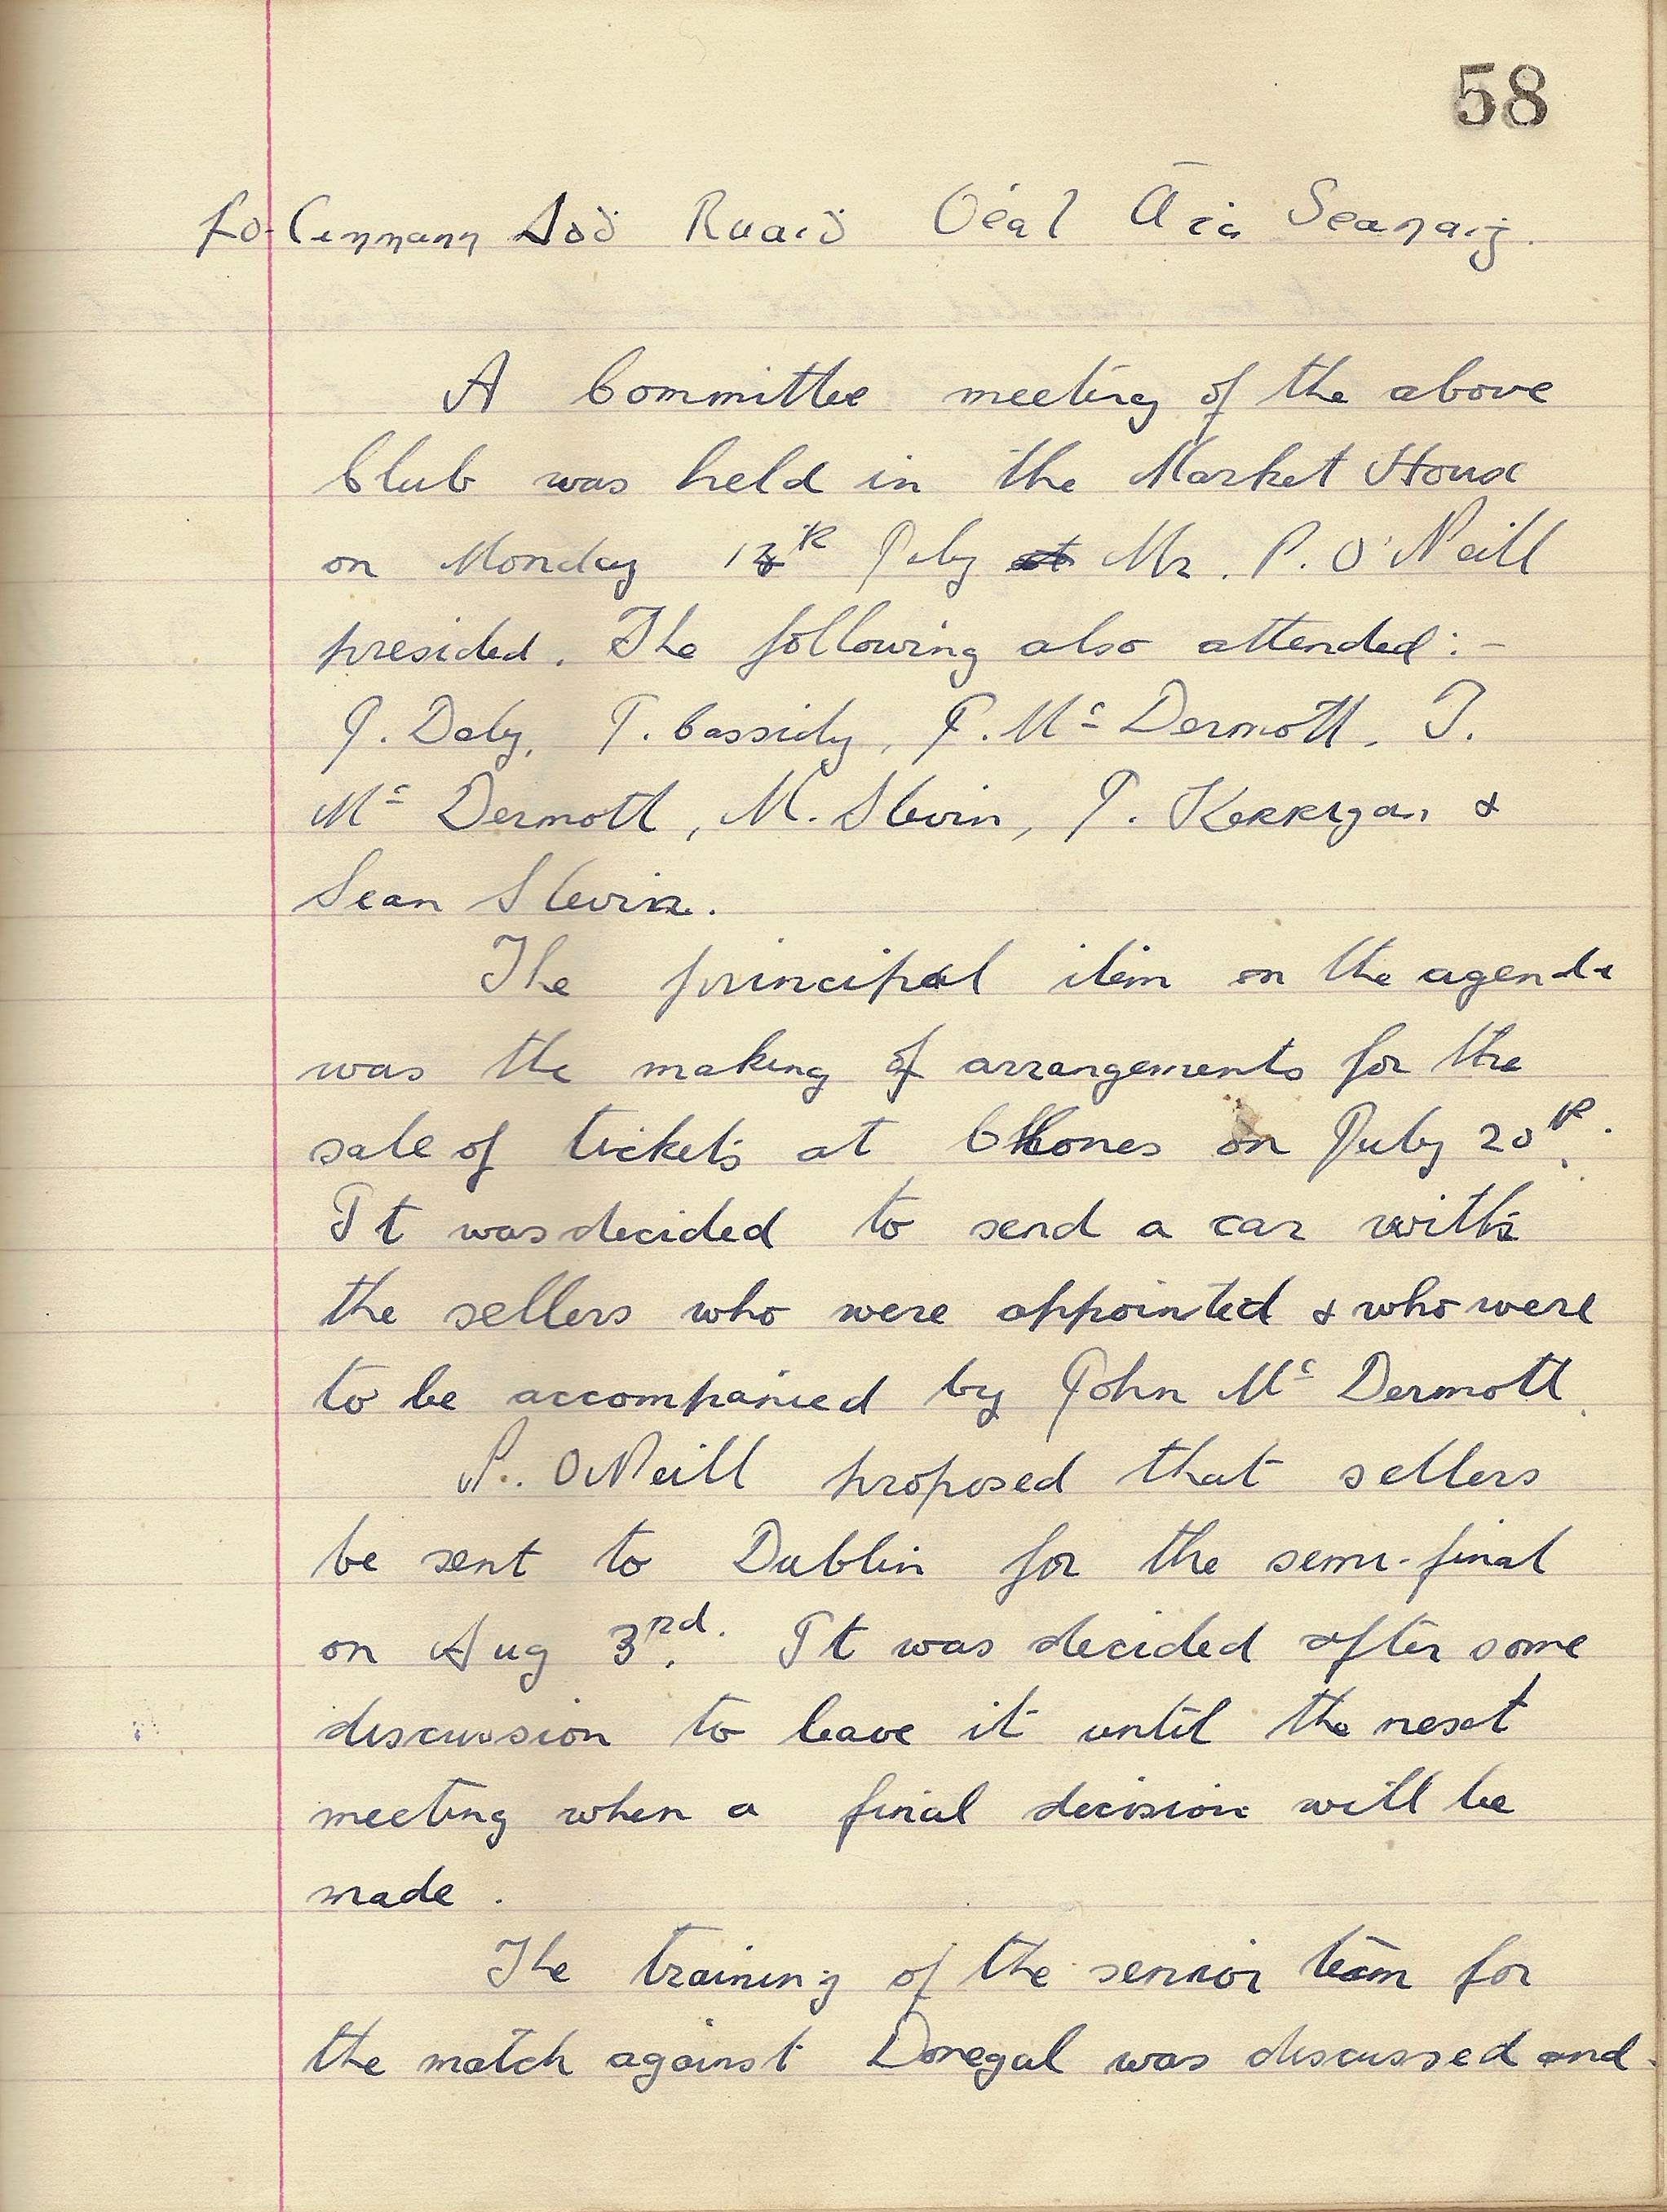 58
Lo-Cumann Aoḋ Ruaiḋ Béal Áta Seanaiġ.
A Committee meeting of the above
Club was held in the Market House
on Monday 14th July Mr. P. O'Neill
presided. The following also attended:-
J. Daly, T. Cassidy, J. Mc Dermott, T.
Mc Dermott, M. Slevin, T. Kerrigan &
Sean Slevin.
The principal item on the agenda
was the making of arrangements for the
sale of tickets at Clones on July 20th.
It was decided to send a car with
the sellers who were appointed & who were
to be accompanied by John Mc Dermott.
P. O'Neill proposed that sellers
be sent to Dublin for the semi-final
on Aug 3rd. It was decided after some
discussion to leave it until the next
meeting when a final decision will be
made.
The training of the senior team for
the match against Donegal was discussed and